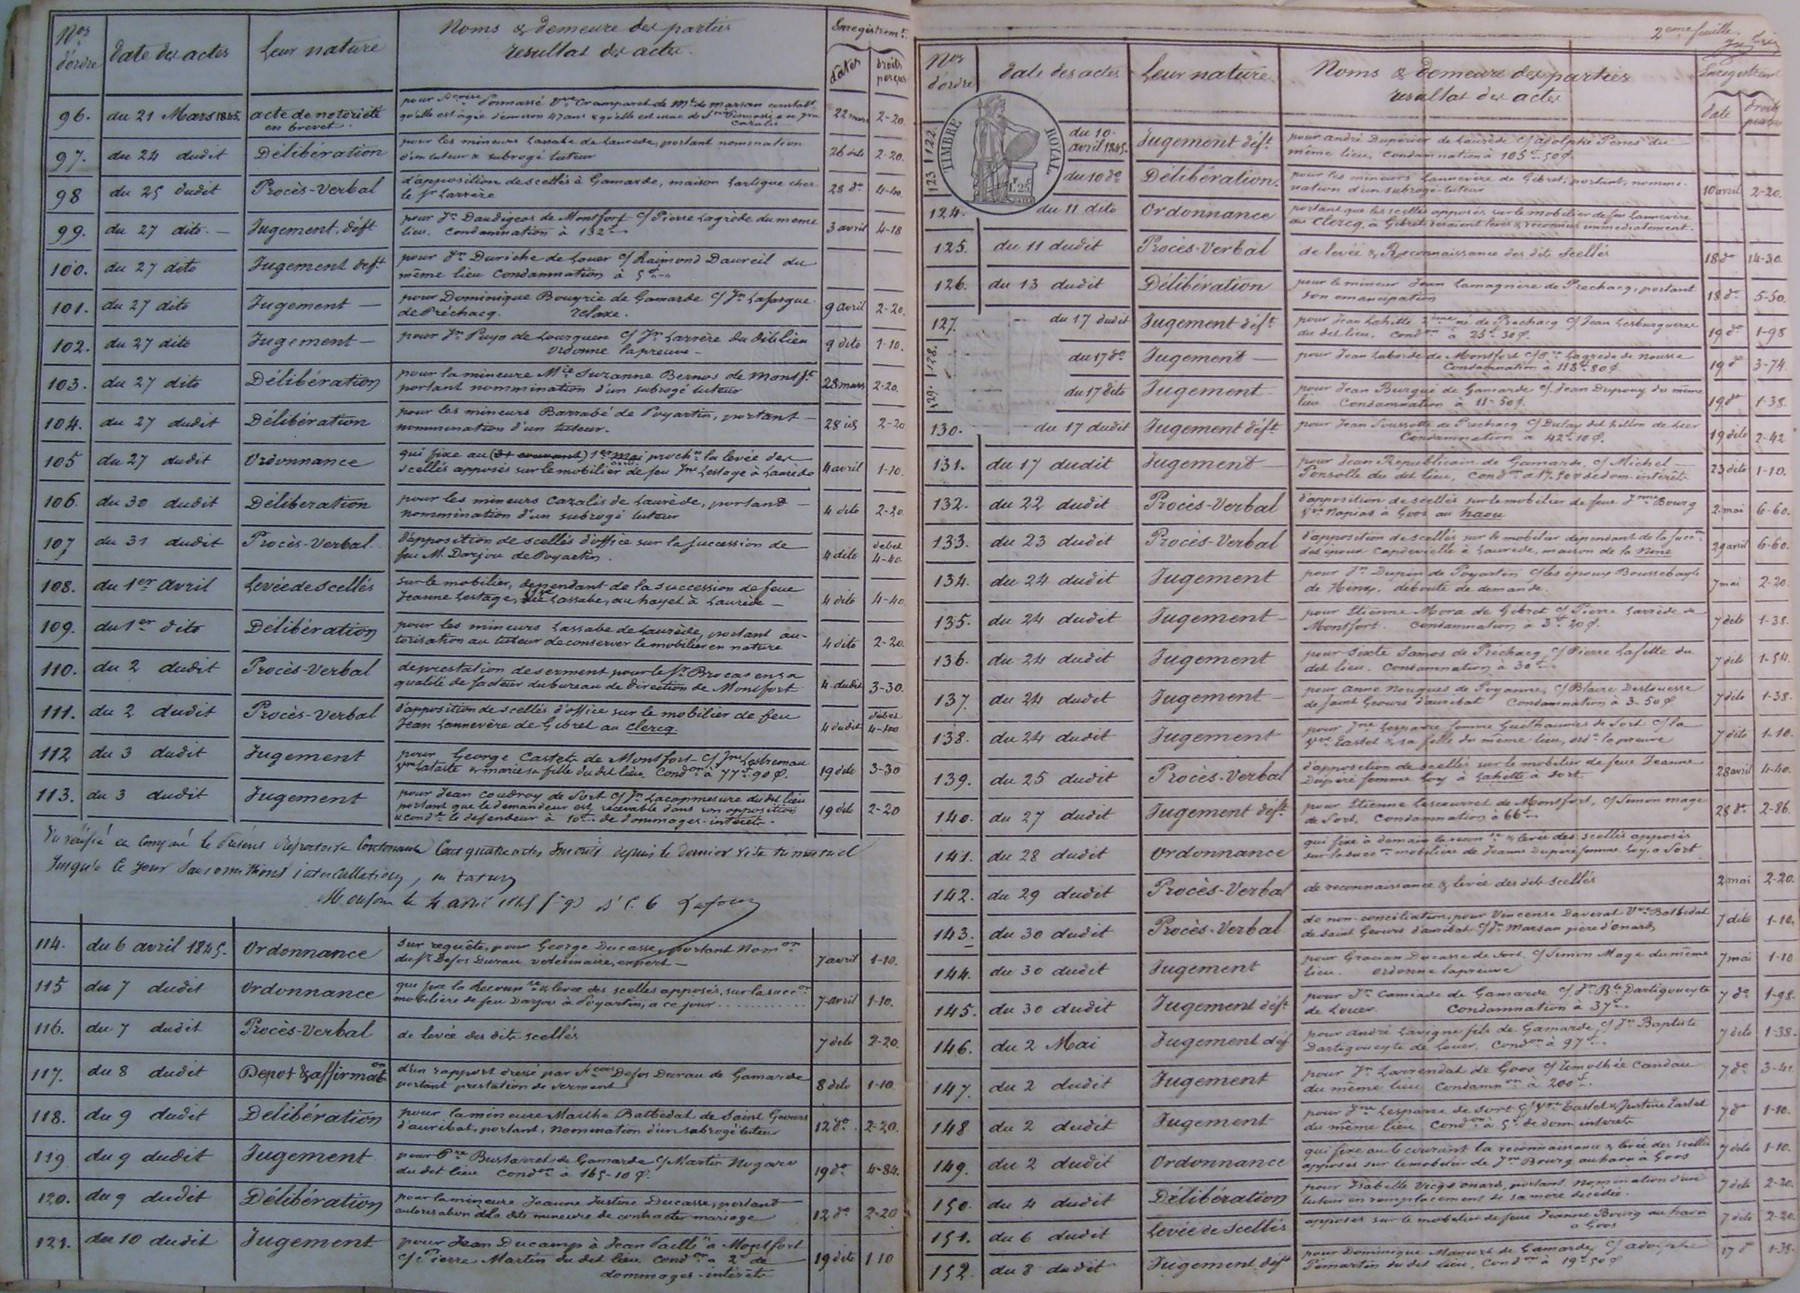 Nos d'ordre
date des actes
Leur nature
Noms & demeure des parties
resultat des actes
Enregistremt.
dates
droits perçus
96. du 21 Mars 1845. acte de notoriété en brevet. 22 mars 2-20.
97. du 24 dudit Délibération pour les mineurs Lassabe de Laurede, portant nomination
d'un tuteur & subrogé tuteur 26 dito 2-20.
98 du 25 dudit Procès-Verbal d'apposition de scellés à Gamarde, maison Lartigue chez
le Sr Larrère 28 do 4-40
99. du 27 dito. Jugement, déft pour Jn Daudigeos de Montfort c/ Pierre Lagrede du meme
lieu. Condamnation à 132 3 avril 4-18
100. du 27 dito Jugement deft. pour Jn Duriche de Louer c/ Raimond Daureil du
même lieu Condamnation à 5
101. du 27 dito Jugement pour Dominique Bouyrie de Gamarde c/ Jn Lafargue
de Préchacq. relaxe. 9 avril 2-20.
102. du 27 dito Jugement pour Jn Puyo de Lourquen c/ Jn Larrère du dit lieu
ordonne la preuve 9 dito 1-10.
103. du 27 dito Délibération pour la mineure Mie Suzanne Bernos de Montft
portant nommination d'un subrogé tuteur 28 mars 2-20.
104. du 27 dudit Délibération pour les mineurs Barrabé de Poyartin, portant
nommination d'un tuteur. 28 2-20
105 du 27 dudit Ordonnance qui fixe au 1er proch. la levée des
scellés apposés sur le mobilier de feu Jne Lestage à Laurède 4 avril 1-10.
106. du 30 dudit Délibération pour les mineurs Cazalis de Laurède, portant
nommination d'un subrogé tuteur 4 dito 2-20
107 du 31 dudit Procès-Verbal d'apposition de scellés d'office sur la succession de
feu M. Darjou de Poyartin. 4 dito débet 4-40.
108. du 1er avril Levée de scellés sur le mobilier, dépendant de la succession de feue
Jeanne Lestage, Lassabe, au hayet à Laurède 4 dito 4-40
109. du 1er dito Délibération pour les mineurs Lassabe de Laurède, portant au-
torisation au tuteur de conserver le mobilier en nature 4 dito 2-20.
110. du 2 dudit Procès-Verbal de prestation de serment pour le Sr Brocas en sa
qualité de facteur du bureau de direction de Montfort 4 dudit 3-30.
111. du 2 dudit Procès-Verbal d'apposition de scellés d'office sur le mobilier de feu
Jean Lannevère de Gibret au Clercq. 4 dudit débet
112 du 3 dudit Jugement pour George Castets de Montfort c/
& marie sa fille du dit lieu, Condon à 77-90 c. 19 dito 3-30
113. du 3 dudit Jugement pour Jean Coudroy de Sort c/ Jn Lacommesure du dit lieu
portant que le demandeur est recevable dans son opposition
& condt le défendeur à 10 de dommages-intérêts 19 dito 2-20
Montfort le 4 avril 1845
114. du 6 avril 1845. Ordonnance sur requête, pour George Ducasse, portant Nomon
du Sr Defos Durau vétérinaire, expert 7 avril 1-10.
115 du 7 dudit Ordonnance qui fixe la reconn & levée des scellés apposés, sur la succon
mobilière de feu Darjou à Poyartin, à ce jour 7 avril 1-10.
116. du 7 dudit Procès-Verbal de levée des dits scellés 7 dito 2-20.
117. du 8 dudit Depot & affirmaton d'un rapport dressé par Defos Durau de Gamarde
portant prestation de serment 8 dito 1-10.
118. du 9 dudit Délibération pour la mineure Marthe Batbedat de Saint Geours
d'auribat, portant, nomination d'un subrogé tuteur 12 do 2-20.
119. du 9 dudit Jugement pour Bustarret de Gamarde c/ Martin Nogaro
du dit lieu Condon à 165-10 c. 19 do 4-84.
120. du 9 dudit Délibération pour la mineure Jeanne Justine Ducasse, portant
autorisation à la dite mineure de contracter mariage 12 do 2-20
121. du 10 dudit Jugement pour Jean Ducamp à Jean Paillé à Montfort
c/ Pierre Martin du dit lieu Condon à 2 de
dommages-intérêts 19 dito 1-10
2eme feuille
Nos d'ordre
date des actes
Leur nature
Noms & demeure des parties
resultat des actes
Enregistremt
date
droits perçus
TIMBRE ROYAL
1f.25
122. du 10 avril 1845. Jugement déft. pour andré Dupérier de Laurède c/ adolphe
même lieu, Condamnation à 105-50 c.
123 du 10 do Délibération. pour les mineurs Lannevère de Gibret, portant, nommi-
nation d'un subrogé-tuteur 10 avril 2-20.
124. du 11 dito Ordonnance portant que les scellés apposés sur le mobilier de feu Lannevère
au Clercq, à Gibret seraient levés & reconnus immédiatement.
125. du 11 dudit Procès-Verbal de levée & Reconnaissance des dits scellés 18 do 14-30.
126. du 13 dudit Délibération pour le mineur Jean Lamagnère de Prechacq, portant
son émancipation 18 do 5-50.
127. du 17 dudit Jugement déft. pour Jean Lahitte 2eme né de Prechacq c/ Jean Lesburguerre
du dit lieu, Condon à 25-30 c. 19 do 1-98
128. du 17 do Jugement pour Jean Laborde de Montfort c/ Lagrede de Nousse
Condamnation à 118-80 c. 19 do 3-74.
129. du 17 dito Jugement pour Jean Burgué de Gamarde c/ Jean Dupouy du même
lieu Condamnation à 11-50 c. 19 do 1-38.
130. du 17 dudit Jugement déft pour Jean de Prechacq c/ Dulay
Condamnation à 42-10 c. 19 dito 2-42
131. du 17 dudit Jugement pour Jean Republicain de Gamarde c/ Michel
Ponsolle du dit lieu, Condon à 17-50 de dom-intérêts 23 dito 1-10.
132. du 22 dudit Procès-Verbal d'apposition de scellés sur le mobilier de feue Jnne Bourg
Vve Napias à Goos au haou 2 mai 6-60.
133. du 23 dudit Procès-Verbal d'apposition de scellés sur le mobilier dépendant de la succon
des époux Capdeville à Laurède, maison de la Nine 29 avril 6-60.
134. du 24 dudit Jugement pour Jn Dupin de Poyartin c/ les époux Boussebayle
de Hinx, déboute de demande. 7 mai 2-20.
135. du 24 dudit Jugement pour Etienne Mora de Gibret c/ Pierre Larrède de
Montfort. Condamnation à 3-20 c. 7 dito 1-38.
136. du 24 dudit Jugement pour Sixte Samos de Prechacq c/ Pierre Lafitte du
dit lieu. Condamnation à 30 7 dito 1-54.
137. du 24 dudit Jugement pour anne Nougues de Poyanne, c/ Blaise Destouesse
de Saint Geours d'auribat Condamnation à 3-50 c 7 dito 1-38.
138. du 24 dudit Jugement pour Jne Lesparre femme Guilhaumes de Sort c/ la
Vve Castel & sa fille du même lieu, ord. la preuve 7 dito 1-10.
139. du 25 dudit Procès-Verbal d'apposition de scellés sur le mobilier de feue Jeanne
Dupéré femme Loy à Lahette à Sort 28 avril 4-40.
140. du 27 dudit Jugement déft. pour Etienne Lescourret de Montfort, c/ Simon Mage
de Sort. Condamnation à 66 28 do 2-86.
141. du 28 dudit Ordonnance qui fixe à demain la reconnce & levée des scellés apposés
sur la succon mobilière de Jeanne Dupéré femme Loy, à Sort.
142. du 29 dudit Procès-Verbal de reconnaissance & levée des dits scellés 2 mai 2-20.
143. du 30 dudit Procès-Verbal de non-conciliation, pour Vincense Daverat Vve Batbedat
de Saint Geours d'auribat c/ Jn Marsan père d'onard 7 dito 1-10.
144. du 30 dudit Jugement pour Gracian Ducasse de Sort c/ Simon Mage du même
lieu. ordonne la preuve 7 mai 1-10
145. du 30 dudit Jugement déft. pour Jn Camiade de Gamarde c/ Jn Bte Dartigoueyte
de Louer. Condamnation à 37 7 do 1-98.
146. du 2 Mai Jugement déf pour andré Lavigne fils de Gamarde c/ Jn Baptiste
Dartigoueyte de Louer, Condon à 97 7 dito 1-38.
147. du 2 dudit Jugement pour Jn Larrendat de Goos c/ Timothée Candau
du même lieu Condamnon à 200 7 do
148 du 2 dudit Jugement pour Jne Lesparre de Sort c/ Vve Castel & Justine Castel
du même lieu Condon à 5 de dom. intérêts 7 do 1-10.
149. du 2 dudit Ordonnance qui fixe au 6 courant la reconnaissance & levée des scellés
apposés sur le mobilier de Jne Bourg au haou à Goos 7 dito 1-10.
150. du 4 dudit Délibération pour Isabelle onard, portant nomination d'un
tuteur en remplacement de sa mère décédée. 7 dito 2-20.
151. du 6 dudit Levée de Scellés apposés sur le mobilier de feue Jeanne Bourg au haou
à Goos 7 dito 2-20.
152. du 8 dudit Jugement déft pour Dominique de Gamarde c/ adolphe
du dit lieu, Condon à 19-50 c 17 do 1-38.